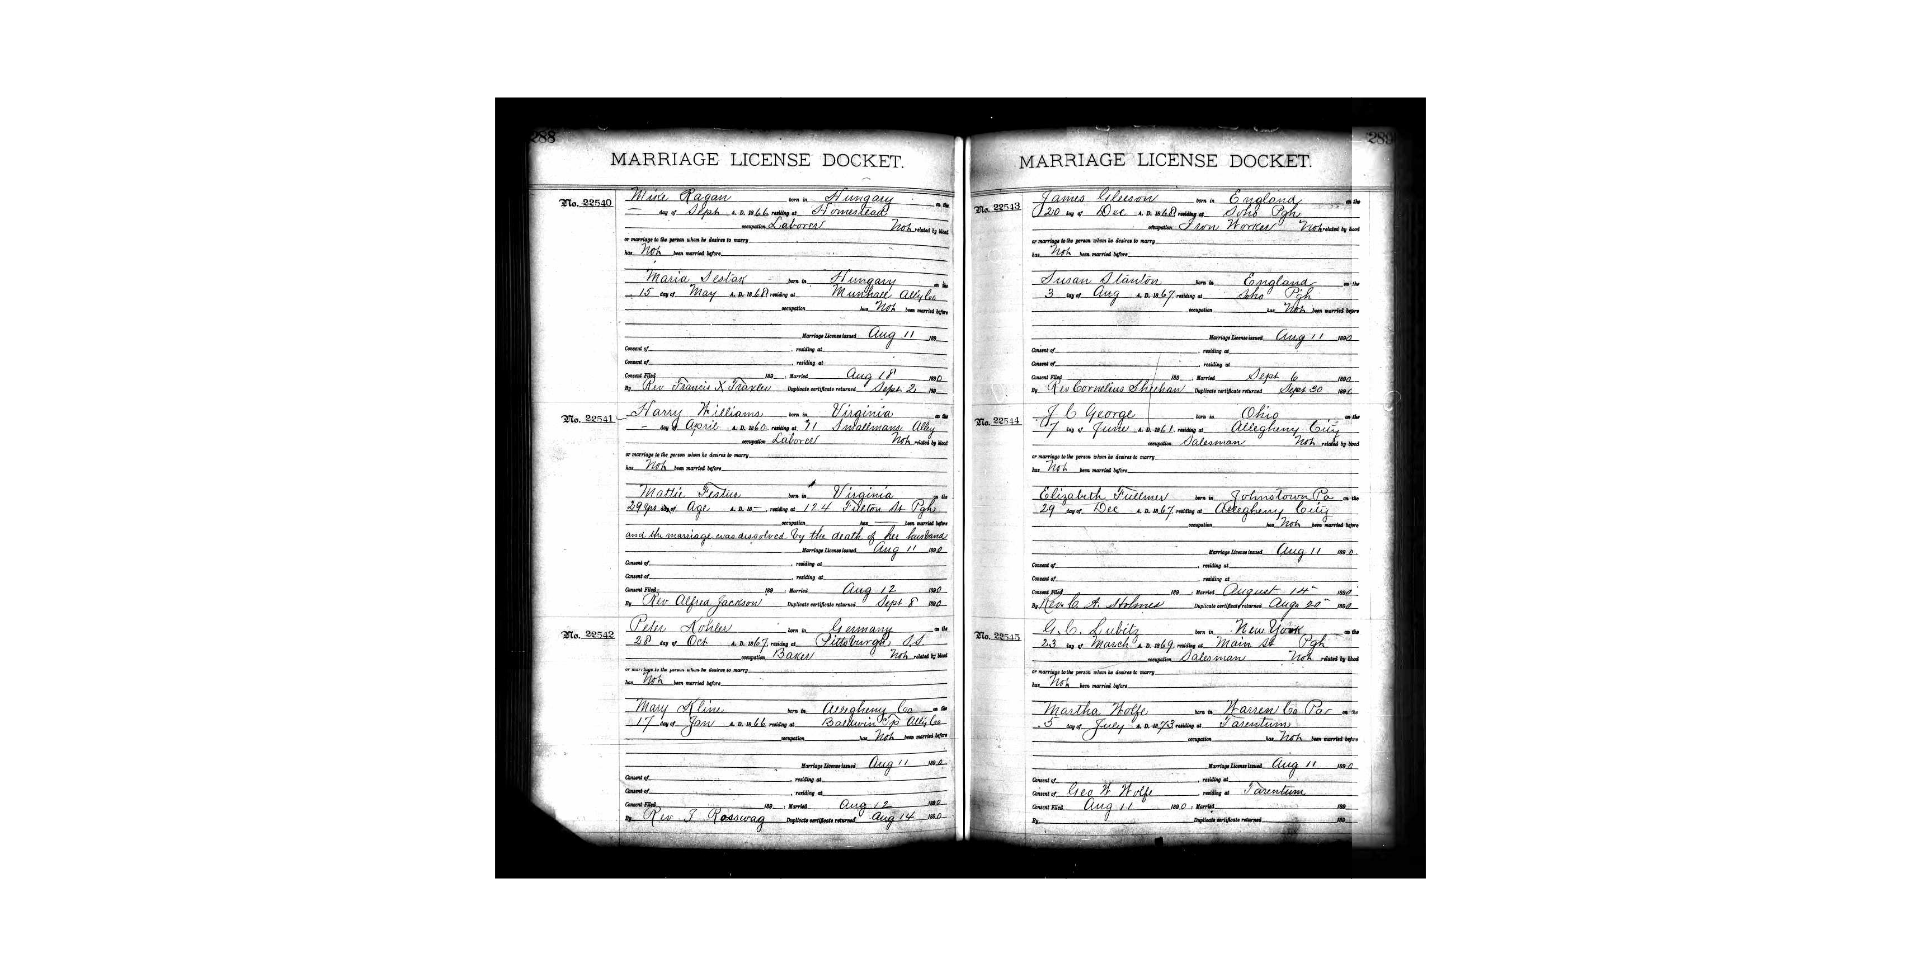 288
MARRIAGE LICENSE DOCKET.
No. 22540
Mike Ragan born in Hungary on the
— day of Sept A. D. 1866 residing at Homestead
occupation Laborer Not related by blood
or marriage to the person whom he desires to marry
has Not been married before
Maria Sestak born in Hungary on the
15 day of May A. D. 1868 residing at Munhall Alleg Co
occupation has Not been married before
Marriage License issued Aug 11 189
Consent of , residing at
Consent of , residing at
Consent Filed 189 ; Married Aug 18 1890
By Rev Francis X Traxler Duplicate certificate returned Sept 2 189
No. 22541
Harry Williams born in Virginia on the
— day of April A. D. 1860 residing at 71 Smallmans Alley
occupation Laborer Not related by blood
or marriage to the person whom he desires to marry
has Not been married before
Mattie born in Virginia on the
29 yrs day of Age A. D. 18— , residing at 124 Fulton St Pgh
occupation has — been married before
and the marriage was dissolved by the death of her husband
Marriage License issued Aug 11 1890
Consent of , residing at
Consent of , residing at
Consent Filed 189 ; Married Aug 12 1890
By Rev Alfred Jackson Duplicate certificate returned Sept 8 1890
No. 22542
Peter Kohler born in Germany on the
28 day of Oct A. D. 1867 residing at Pittsburgh S.S.
occupation Baker Not related by blood
or marriage to the person whom he desires to marry
has Not been married before
Mary Kline born in Allegheny Co on the
17 day of Jan A. D. 1866 residing at Baldwin Tp Alleg Co
occupation has Not been married before
Marriage License issued Aug 11 1890
Consent of , residing at
Consent of , residing at
Consent Filed 189 ; Married Aug 12 1890
By Rev J Rosswag Duplicate certificate returned Aug 14 1890
289
MARRIAGE LICENSE DOCKET.
No. 22543
James Gleeson born in England on the
20 day of Dec A. D. 1868 residing at Soho Pgh
occupation Iron Worker Not related by blood
or marriage to the person whom he desires to marry
has Not been married before
Susan Stanton born in England on the
3 day of Aug A. D. 1867 residing at Soho Pgh
occupation has Not been married before
Marriage License issued Aug 11 1890
Consent of , residing at
Consent of , residing at
Consent Filed 189 ; Married Sept 6 1890
By Rev Cornelius Sheehan Duplicate certificate returned Sept 30 1890
No. 22544
J C George born in Ohio on the
7 day of June A. D. 1861 residing at Allegheny City
occupation Salesman Not related by blood
or marriage to the person whom he desires to marry
has Not been married before
Elizabeth Fullmer born in Johnstown Pa on the
29 day of Dec A. D. 1867 residing at Allegheny City
occupation has Not been married before
Marriage License issued Aug 11 1890
Consent of , residing at
Consent of , residing at
Consent Filed 189 ; Married August 14" 1890
By Rev C. A. Holmes Duplicate certificate returned Aug. 20" 1890
No. 22545
G. C. Lubitz born in New York on the
23 day of March A. D. 1869 residing at Main St Pgh
occupation Salesman Not related by blood
or marriage to the person whom he desires to marry
has Not been married before
Martha Wolfe born in Warren Co Pa on the
5 day of July A. D. 1873 residing at Tarentum
occupation has Not been married before
Marriage License issued Aug 11 1890
Consent of , residing at
Consent of Geo W Wolfe , residing at Tarentum
Consent Filed Aug 11 1890 ; Married 189
By Duplicate certificate returned 189